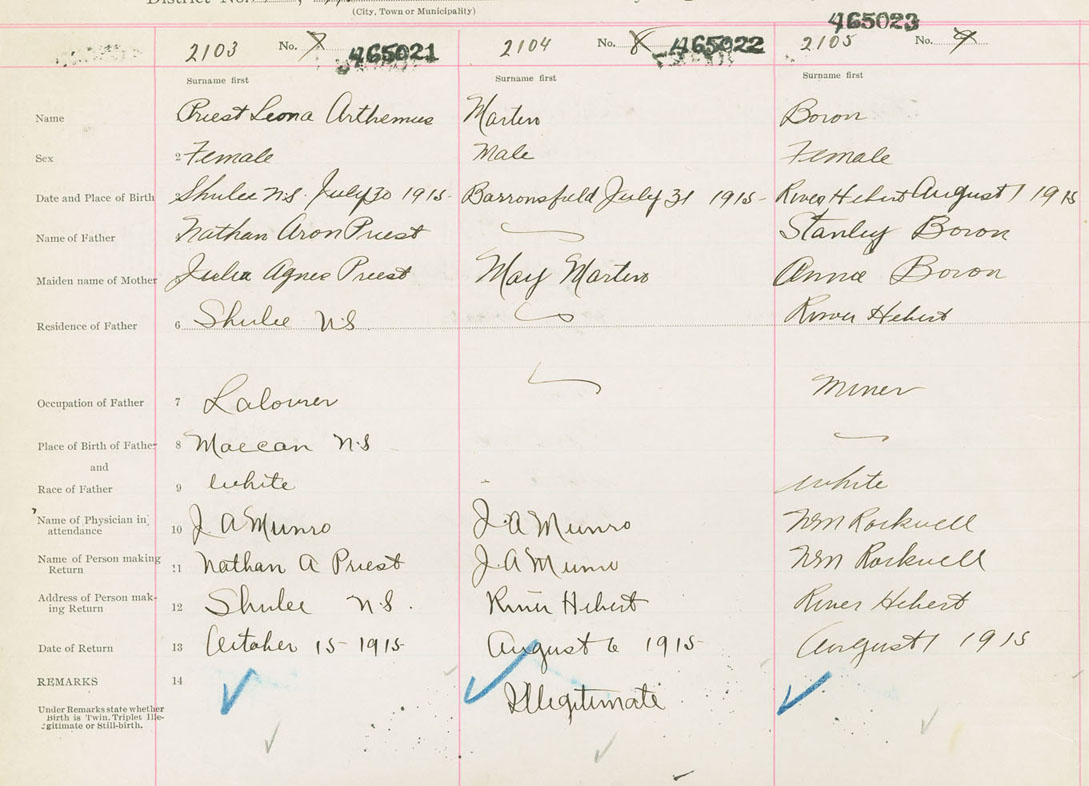 District No.
(City, Town or Municipality)
465023
2103 No. 7 465021 2104 No. 8 465022 2105 No. 9
Surname first Surname first Surname first
Name Priest Leona Arthemus Martin Boron
Sex 2 Female Male Female
Date and Place of Birth Shulee N.S. July 30 1915 Barronsfield July 31 1915 River Hebert August 1 1915
Name of Father Nathan Aron Priest Stanley Boron
Maiden name of Mother Julia Agnes Priest May Martin Annie Boron
Residence of Father 6 Shulee N.S River Hebert
Occupation of Father 7 Labourer Miner
Place of Birth of Father 8 Maccan N.S
and
Race of Father 9 White White
Name of Physician in attendance 10 J A Munro J. A Munro Wm Rockwell
Name of Person making Return 11 Nathan A Priest J. A Munro Wm Rockwell
Address of Person making Return 12 Shulee N.S. River Hebert River Hebert
Date of Return 13 October 15 1915 August 6 1915 August 1 1915
REMARKS 14
Under Remarks state whether Birth is Twin, Triplet Illegitimate or Still-birth. Illegitimate